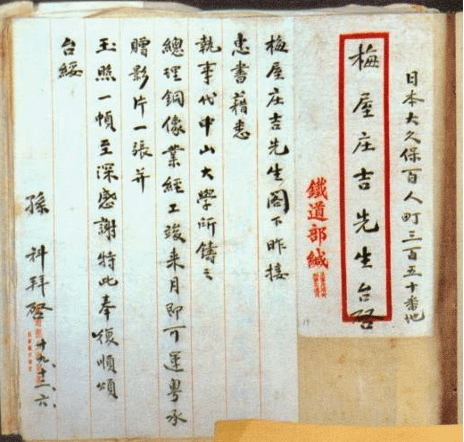 日本大久保百人町三百五十番地
梅屋庄吉先生台啓
鐵道部緘
梅屋庄吉先生閣下昨接
惠書藉悉
執事代中山大學所鑄之
總理銅像業經工竣来月即可運粤承
贈影片一張并
玉照一幀至深感謝特此奉復順頌
台綏
孫科拜啓
十九